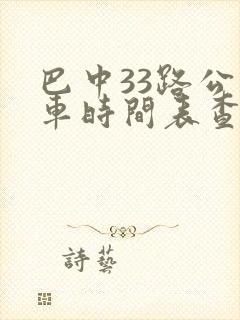 巴中33路公
車時間表查
詩藝